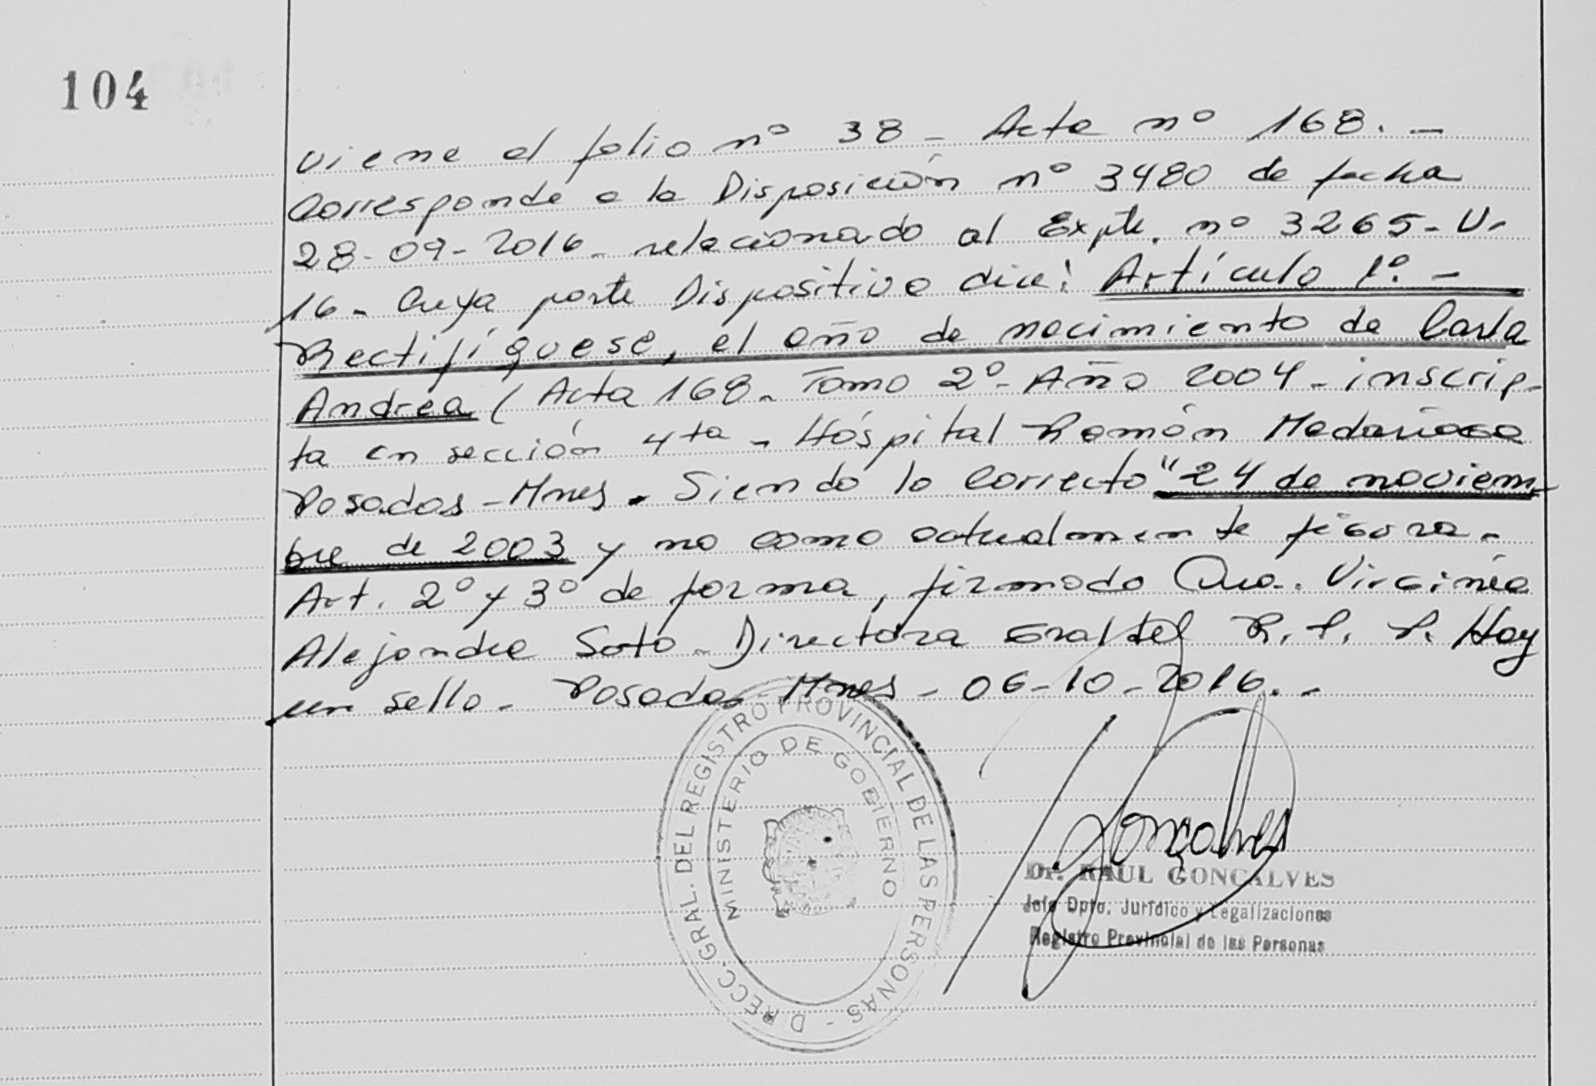 104
viene el folio nº 38 - Acta nº 168. -
Corresponde a la Disposición nº 3480 de fecha
28-09-2016- relacionado al Expte. nº 3265-U-
16- Cuya parte Dispositiva dice: Artículo 1º. -
Rectifíquese, el año de nacimiento de Carla
Andrea (Acta 168- Tomo 2º- Año 2004- inscrip-
ta en sección 4ta - Hospital Ramón Madariaga
Posadas - Mnes. Siendo lo Correcto "24 de noviem-
bre de 2003 y no como actualmente figura.-
Art. 2º y 3º de forma, firmado Virginia
Alejandra Soto- Directora Gral del R. P. P. Hay
un sello- Posadas Mnes - 06-10-2016. -
DIRECC. GRAL. DEL REGISTRO PROVINCIAL DE LAS PERSONAS -
MINISTERIO DE GOBIERNO
Gonçalves
Dr. RAUL GONCALVES
Jefe Dpto. Jurídico y Legalizaciones
Registro Provincial de las Personas